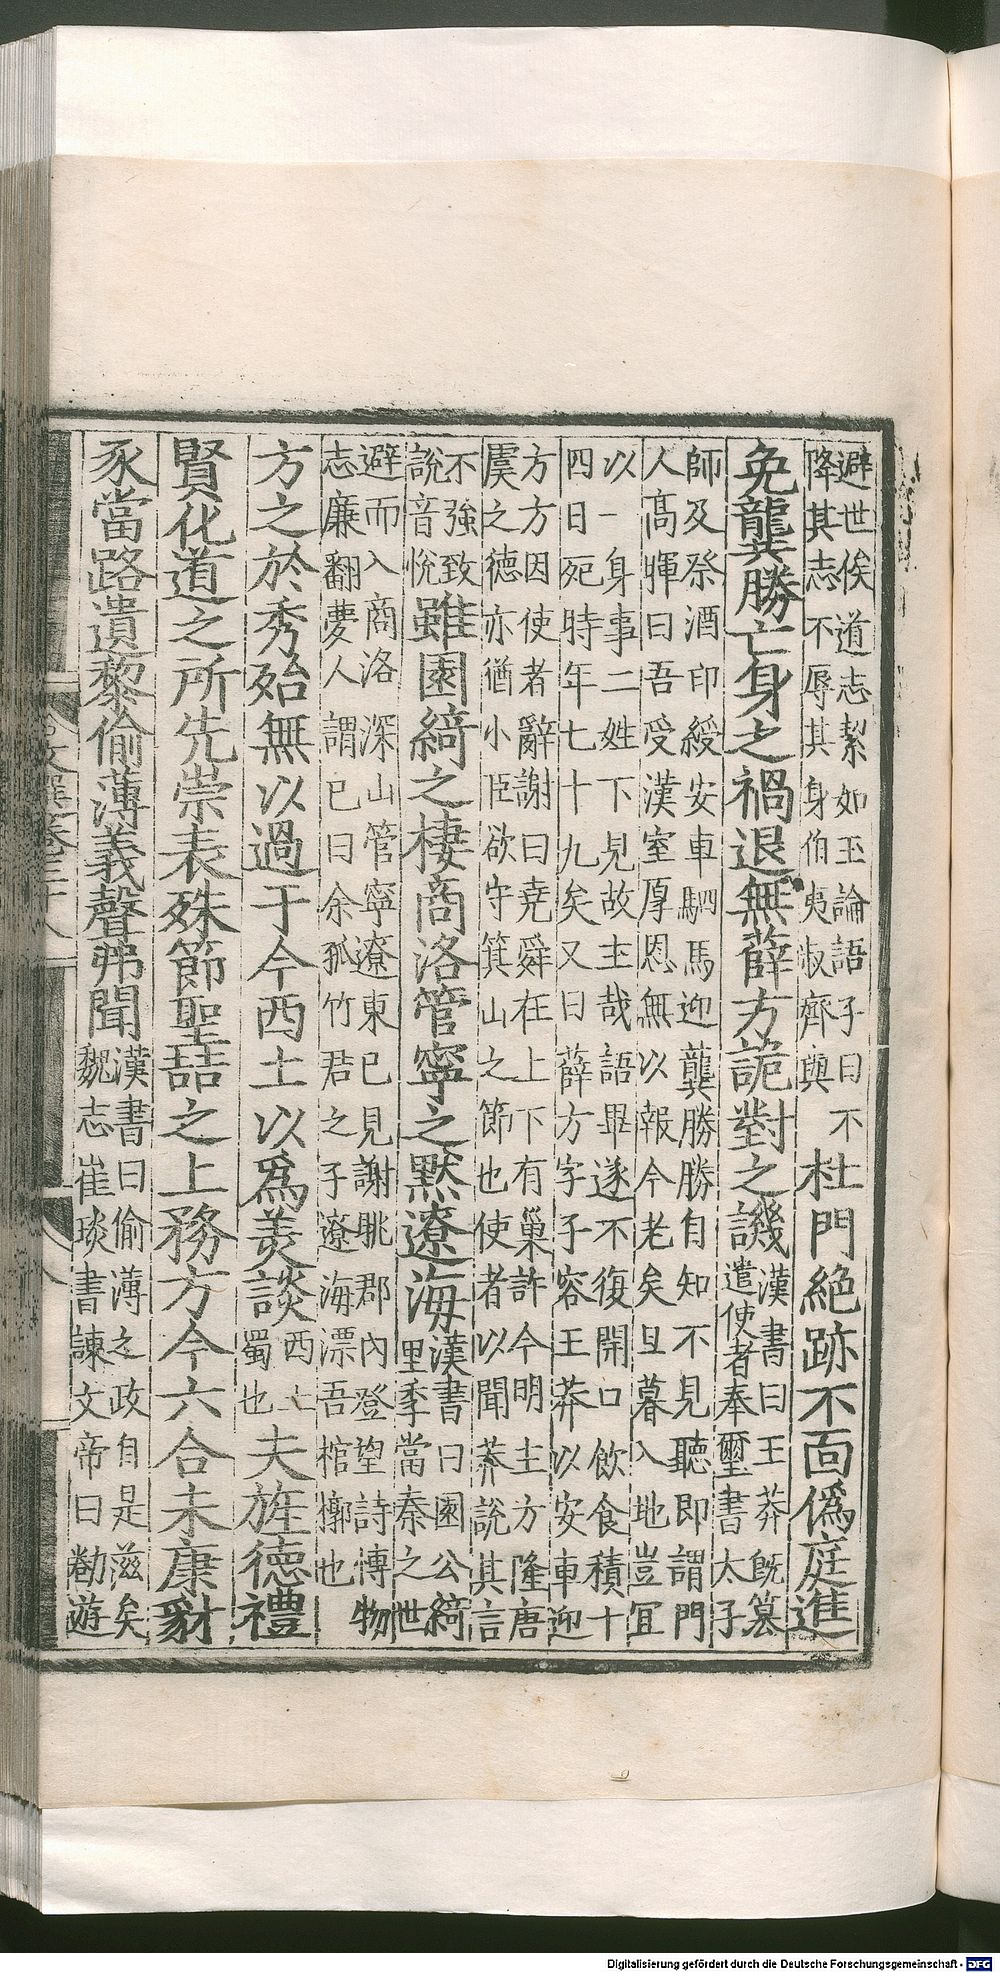 避世俟道志絜如玉論語子曰不
降其志不辱其身伯夷叔齊與
杜門絕跡不面僞庭進
免龔勝亡身之禍退無薛方詭對之譏
漢書曰王莽既篡
遣使者奉璽書太子
師及祭酒印綬安車駟馬迎龔勝勝自知不見聽即謂門
人高暉曰吾受漢室厚恩無以報今老矣旦暮入地豈冝
以一身事二姓下見故主哉語畢遂不復開口飲食積十
四日死時年七十九矣又曰薛方字子容王莽以安車迎
方方因使者辭謝曰堯舜在上下有巢許今明主方隆唐
虞之德亦猶小臣欲守箕山之節也使者以聞莽說其言
不強致
說音悅
雖園綺之棲商洛管寧之默遼海
漢書曰園公綺
里季當秦之世
避而入商洛深山管寧遼東已見謝眺郡內登望詩博物
志廉翻夢人謂已曰余孤竹君之子遼海漂吾棺槨也
方之於秀殆無以過于今西土以爲羙談
西土
蜀也
夫旌德禮
賢化道之所先崇表殊節聖喆之上務方今六合未康豺
豕當路遺黎偷薄義聲弗聞
漢書曰偷薄之政自是滋矣
魏志崔琰書諫文帝曰勌遊
Digitalisierung gefördert durch die Deutsche Forschungsgemeinschaft - DFG